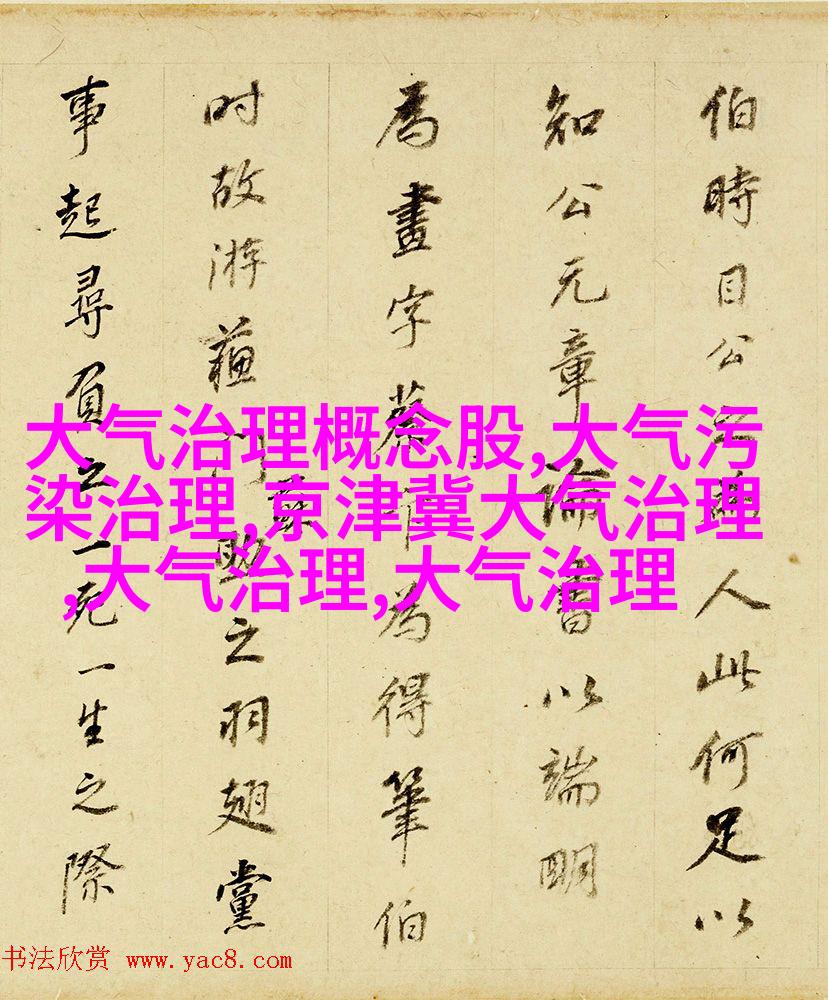 伯時目公人此何足以
知公元章論書以端明
為畫字蔡卞為得筆伯
时故游蘓門助之羽翅黨
事起尋負之一死一生之際
大气治理概念股,大气污
染治理,京津冀大气治理
,大气治理,大气治理
书法欣赏 www.yac8.com